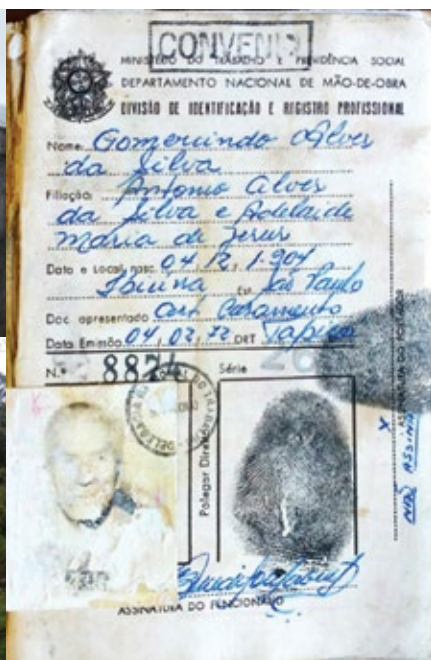 CONVENIO
MINISTÉRIO DO TRABALHO E PREVIDÊNCIA SOCIAL
DEPARTAMENTO NACIONAL DE MÃO-DE-OBRA
DIVISÃO DE IDENTIFICAÇÃO E REGISTRO PROFISSIONAL
Nome Gomercindo Alves
da Silva
Filiação Antonio Alves
da Silva e Adelaide
Maria de Jesus
Data e Local nasc. 04/12/1.904
Ibiúna Est. São Paulo
Doc. apresentado Cert. Casamento
Data Emissão 04/02/72 DRT
N.º Série
Polegar Direito
ASSINATURA DO PORTADOR
NÃO ASSINA
ASSINATURA DO FUNCIONÁRIO